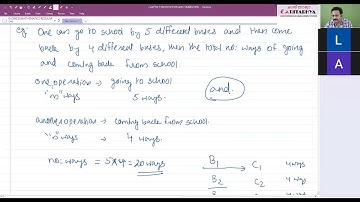 eg: One can go to school by 5 different buses and then come
back by 4 different buses, then the total no: ways of going
and coming back from school
one operation → going to school
"m" ways 5 ways.
and.
another operation → coming back from school.
"n" ways → 4 ways.
no: ways = 5×4 = 20 ways
B1 C1 4 ways
B2 C2 4 ways
L
A